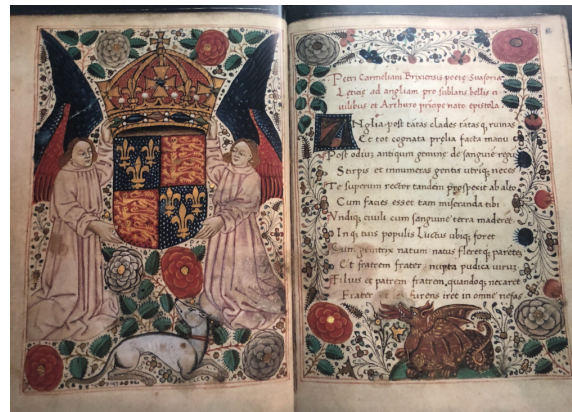 Petri Carmeliani Brixiensis poetę Suasoria
Lętitię ad angliam pro sublatis bellis ci
uilibus et Arthuro prīcipe nato epistola.
Anglia post tātas clades tātasq, ruinas
Et tot cognata prelia facta manu
Post odiū antiquum geminę de sanguine regū
Stirpis et innumeras gentis utriq, neces
Te superum rector tandem prospexit ab alto
Cum facies esset tam miseranda tibi
Vndiq, ciuili cum sanguine terra maderet
Inq, tuis populis Luctus ubiq, foret
Cum genitrix natum natus fleretq, parētes
Et fratrem frater nupta pudica uirum
Filius et patrem fratrem, quandoq, necaret
Frater furens iret in omne nefas